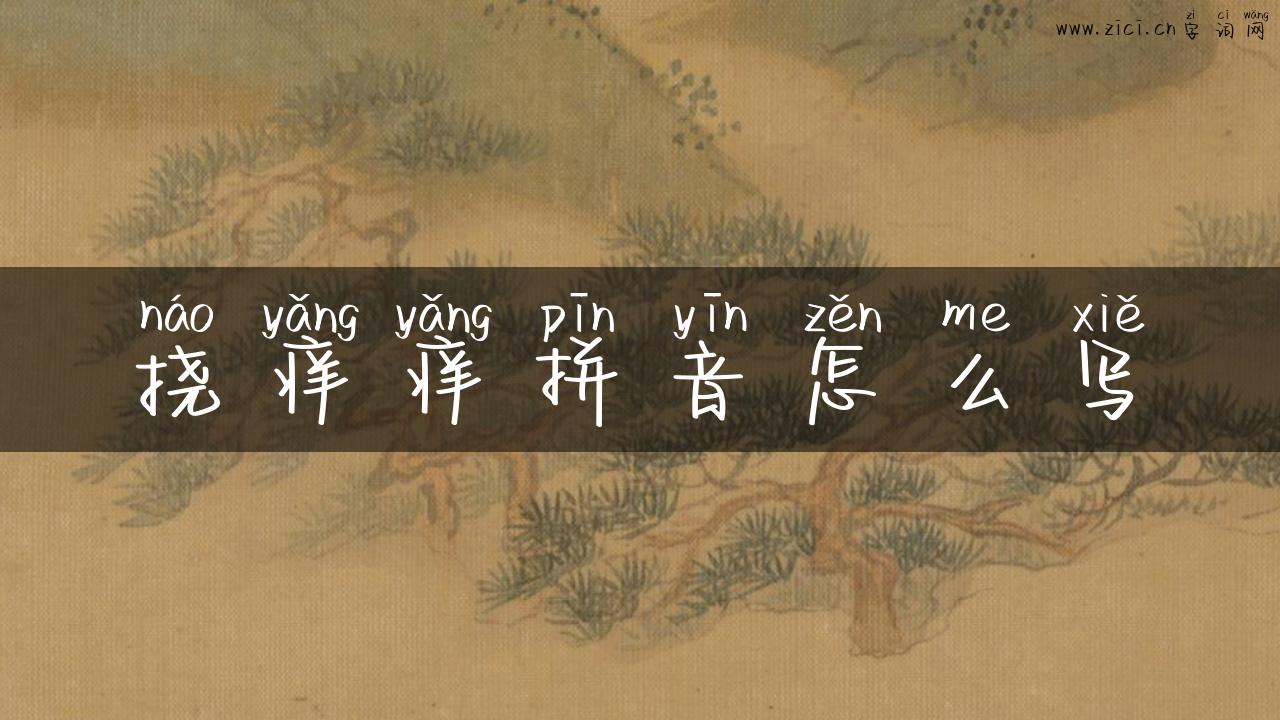 zì cí wǎng
www.zici.cn 字 词 网
náo yǎng yǎng pīn yīn zěn me xiě
挠 痒 痒 拼 音 怎 么 写